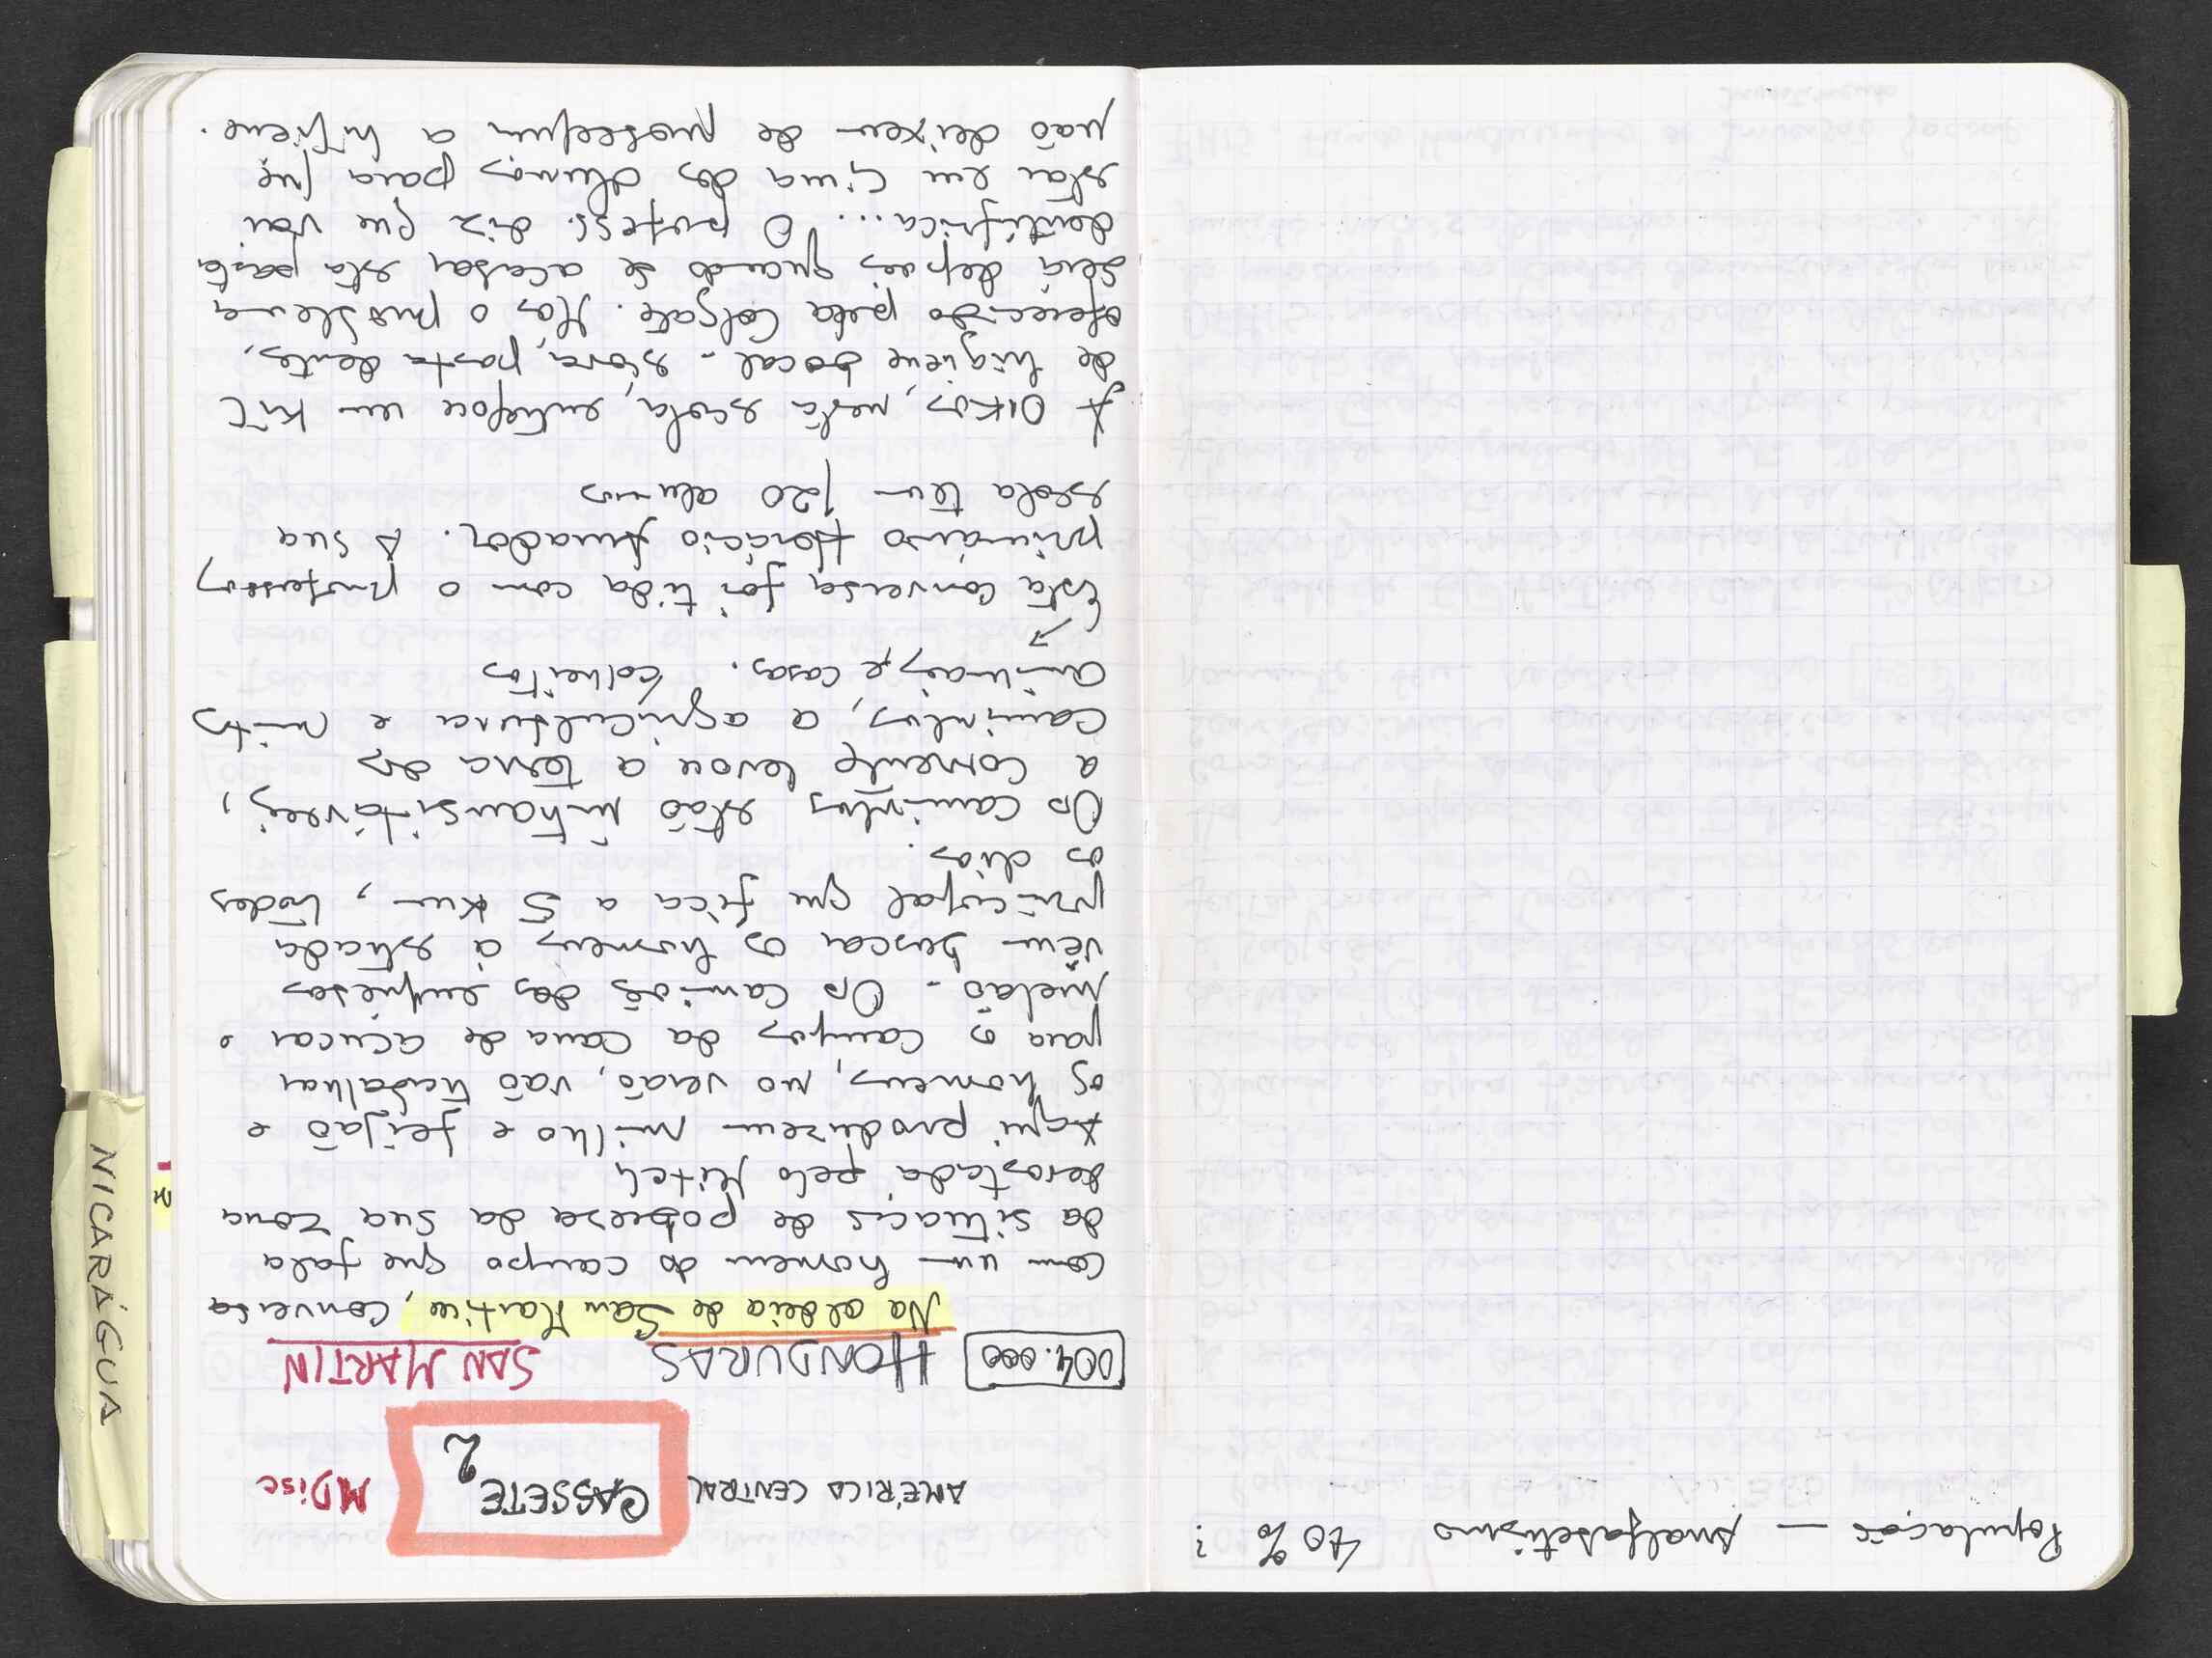 População — Analfabetismo 40% ?
AMÉRICA CENTRAL CASSETE 2 MDisc
004.000 HONDURAS SAN MARTIN
Na aldeia de San Martin, conversa
com um homem do campo que fala
da situação de pobreza da sua zona
derrotada pelo Mitch
Aqui produzem milho e feijão e
os homens, no verão, vão trabalhar
para os campos da cana de açúcar e
melão - Os camiões das empresas
vêm buscar os homens à estrada
principal que fica a 5 Km, todos
os dias.
Os caminhos estão intransitáveis,
a corrente levou a terra dos
caminhos, a agricultura e muitos
animais, e casas. colheitas
Esta conversa foi tida com o professor
primário Horácio Amador. A sua
escola tem 120 alunos
A OIKOS, nesta escola, entregou um Kit
de higiene bocal - escova, pasta dentes,
oferecido pela Colgate. Mas o problema
será depois quando se acabar esta pasta
dentífrica... O profess. diz que vai
estar em cima dos alunos para que
não deixem de proteger a higiene.
NICARÁGUA